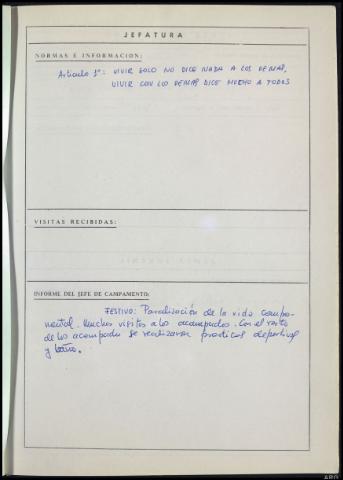 JEFATURA
NORMAS E INFORMACION:
Articulo 1º: VIVIR SOLO NO DICE NADA A LOS DEMAS,
VIVIR CON LO DEMAS DICE MUCHO A TODOS
VISITAS RECIBIDAS:
INFORME DEL JEFE DE CAMPAMENTO:
FESTIVO: Paralización de la vida campa-
mental. Muchas visitas a los acampados. Con el resto
de los acampados se realizaron practicas deportivas
y baño.